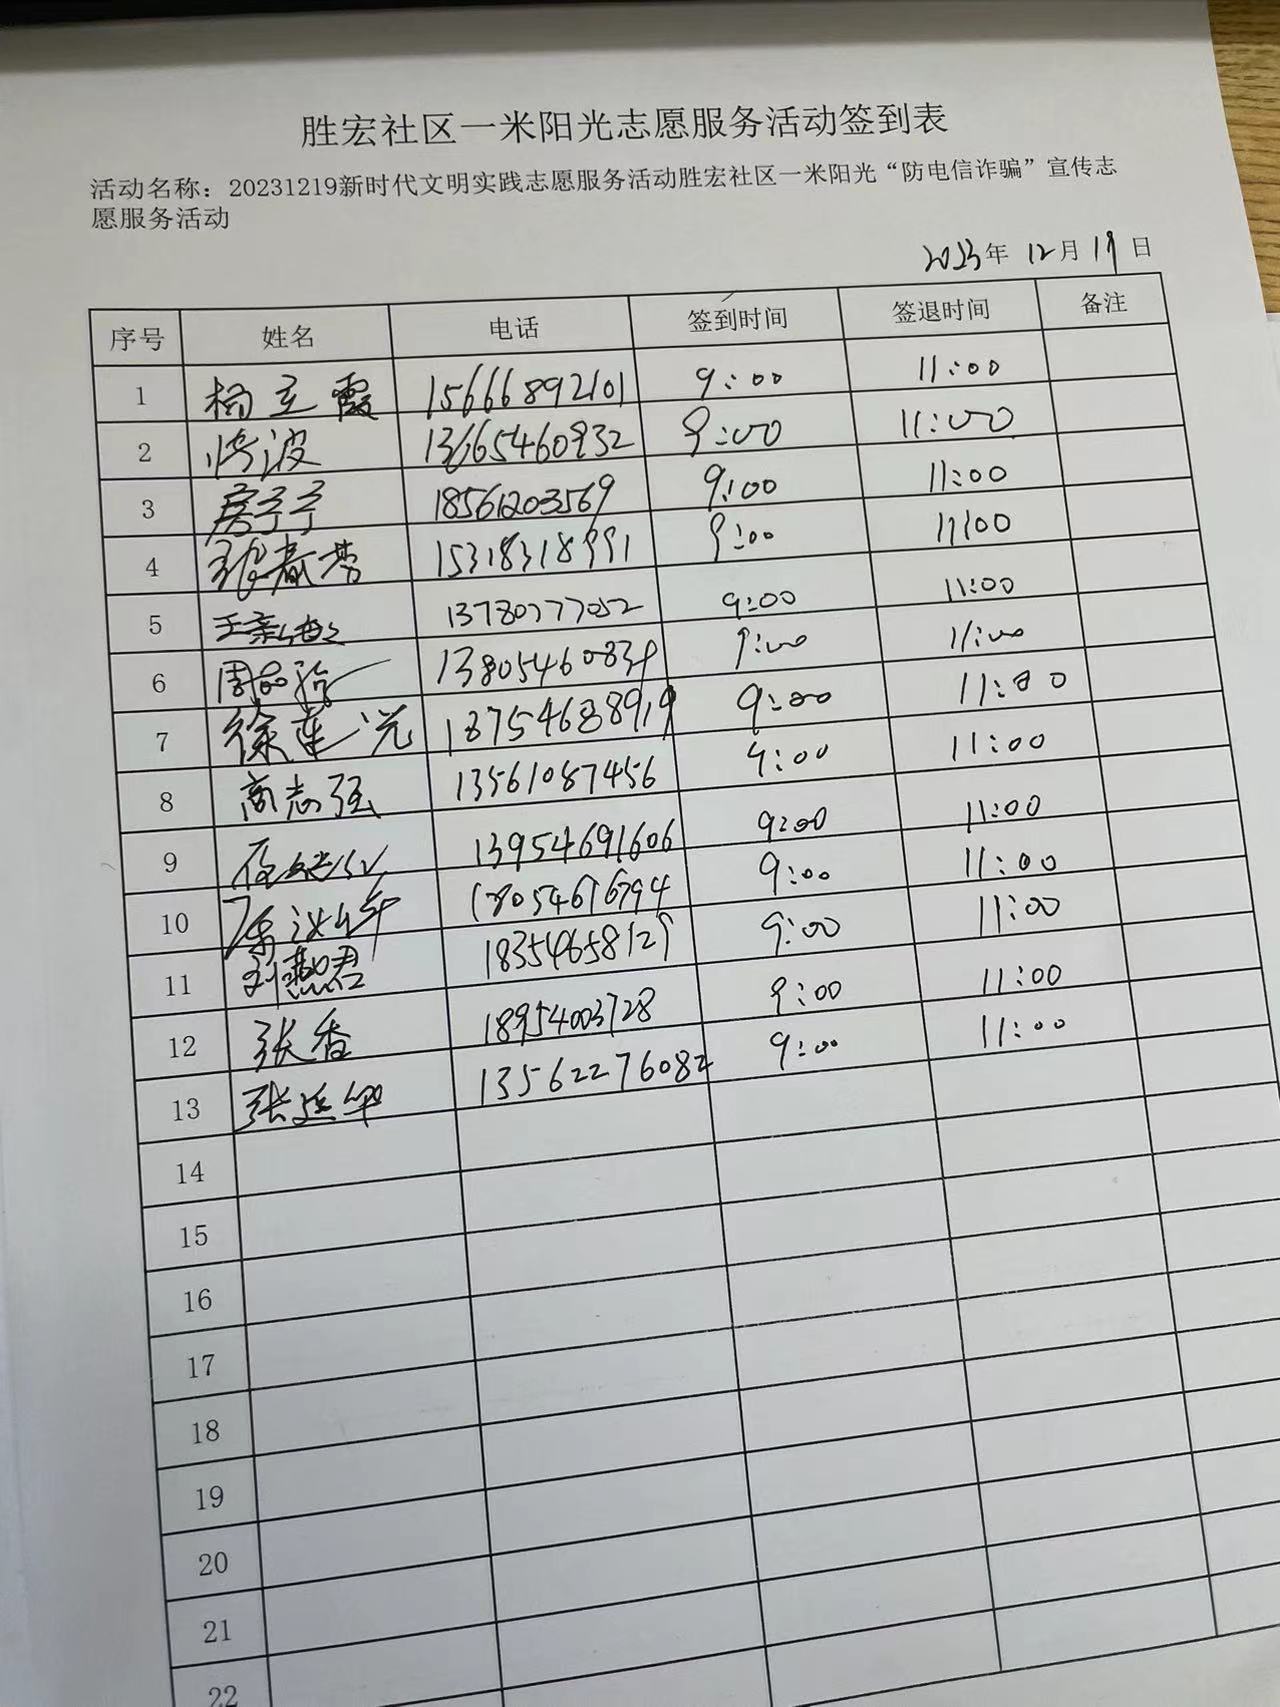 胜宏社区一米阳光志愿服务活动签到表
活动名称：20231219新时代文明实践志愿服务活动胜宏社区一米阳光“防电信诈骗”宣传志
愿服务活动
2023年 12月 19日
序号 姓名 电话 签到时间 签退时间 备注
1 杨立霞 15666892101 9:00 11:00
2 波 13665460932 9:00 11:00
3 房子子 18561203569 9:00 11:00
4 张春芳 15318318991 9:00 11:00
5 王亲 13780777052 9:00 11:00
6 周品 13805460839 9:00 11:00
7 徐连光 18754688919 9:00 11:00
8 商志强 13561087456 9:00 11:00
9 13954691606 9:00 11:00
10 18054676794 9:00 11:00
11 刘慧君 18354658129 9:00 11:00
12 张香 18954003728 9:00 11:00
13 张延华 13562276082 9:00 11:00
14
15
16
17
18
19
20
21
22